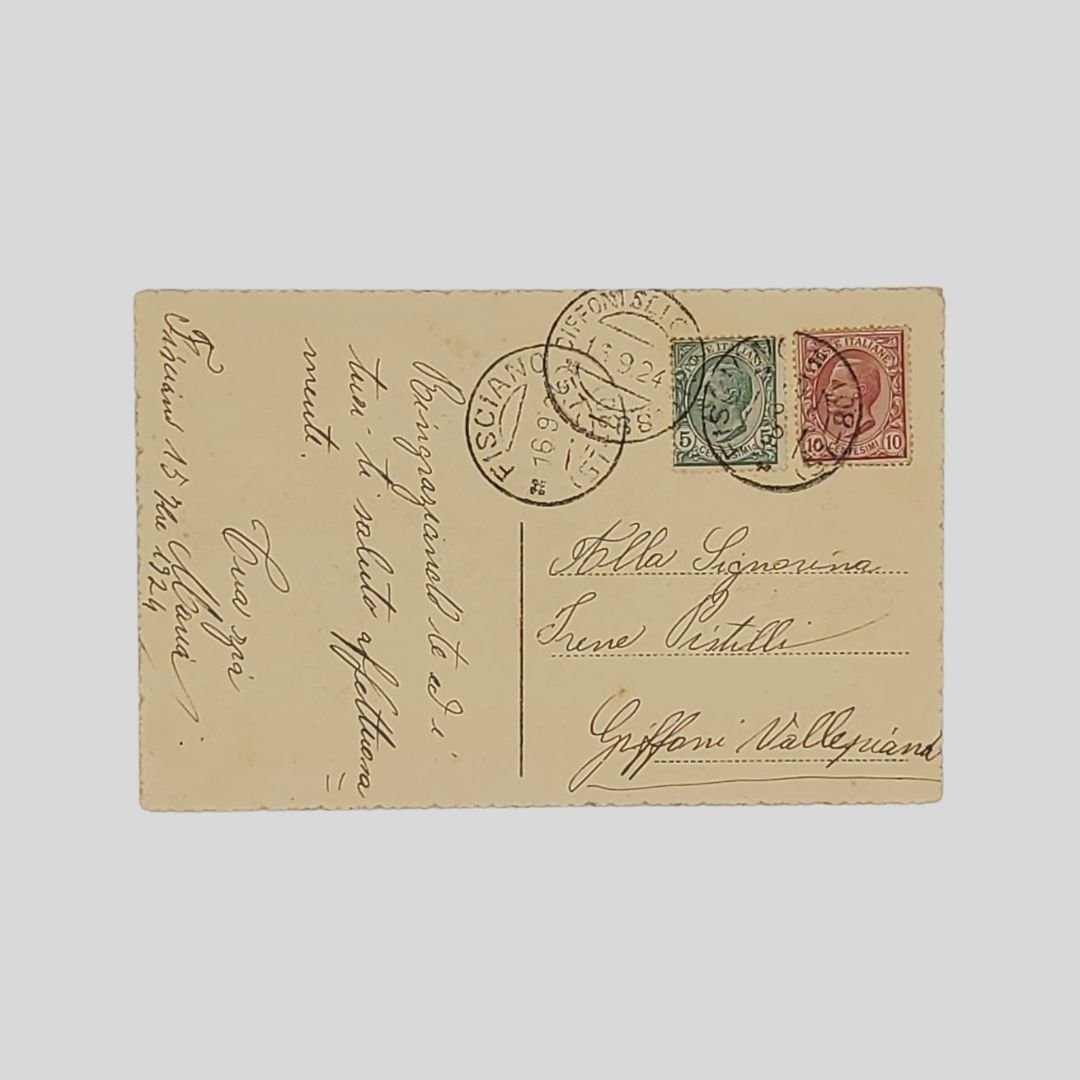 Ringraziando te ed i
tuoi ti saluto affettuosa
=
mente.
Tua zia
Maria
Fisciano 15 1924
FISCIANO
16.9
GIFFONI SEI C
16.9.24
POSTE ITALIANE
5 CENTESIMI
POSTE ITALIANE
10 CENTESIMI 10
Alla Signorina
Irene Pistilli
Giffoni Vallepiana